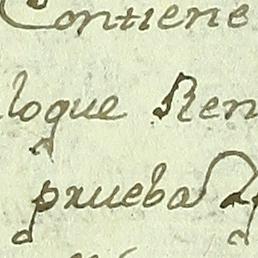 Contiene
loque Ren
prueba